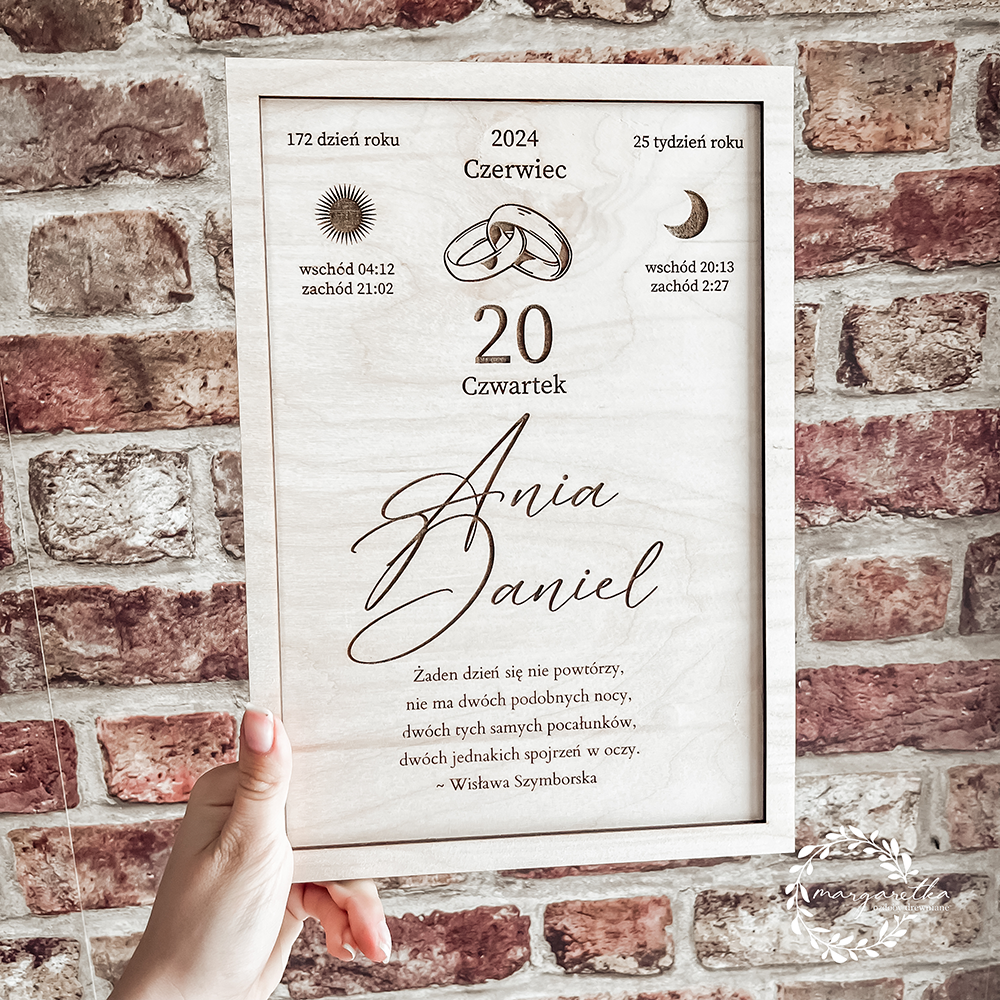 172 dzień roku
2024
Czerwiec
25 tydzień roku
wschód 04:12
zachód 21:02
wschód 20:13
zachód 2:27
20
Czwartek
Ania
Daniel
Żaden dzień się nie powtórzy,
nie ma dwóch podobnych nocy,
dwóch tych samych pocałunków,
dwóch jednakich spojrzeń w oczy.
~ Wisława Szymborska
margaretka
ozdoby drewniane